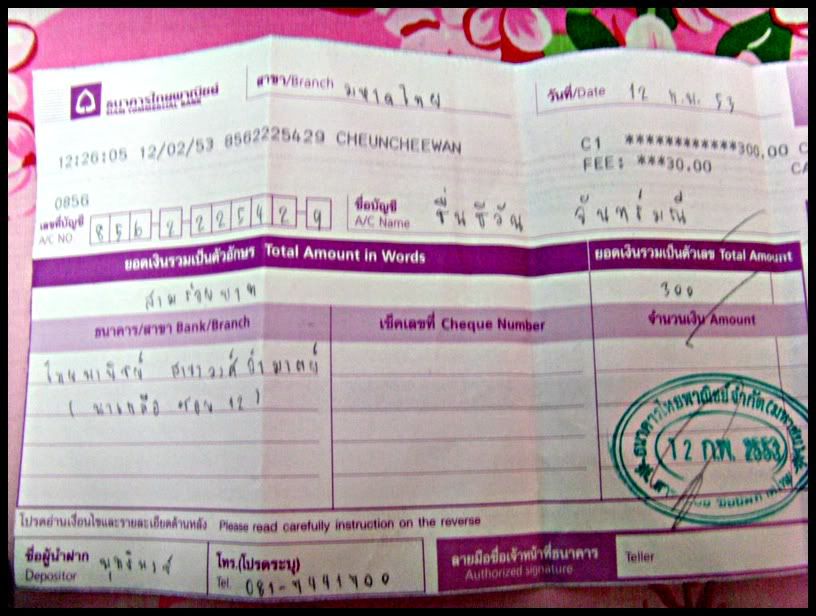 ธนาคารไทยพาณิชย์
SIAM COMMERCIAL BANK
สาขา/Branch มหาดไทย
วันที่/Date 12 ก.พ. 53
12:26:05 12/02/53 8562225429 CHEUNCHEEWAN
C1 ************300.00
FEE: ***30.00
0856
เลขที่บัญชี
A/C NO 856-2-22542-9
ชื่อบัญชี
A/C Name ชื่นชีวัน จันทร์มณี
ยอดเงินรวมเป็นตัวอักษร Total Amount in Words
ยอดเงินรวมเป็นตัวเลข Total Amount
สามร้อยบาท
300
ธนาคาร/สาขา Bank/Branch
เช็คเลขที่ Cheque Number
จำนวนเงิน Amount
ไทยพาณิชย์ สาขาวงศ์อำมาตย์
(นาเกลือ ซอย 12)
12 ก.พ. 2553
โปรดอ่านเงื่อนไขและรายละเอียดด้านหลัง Please read carefully instruction on the reverse
ชื่อผู้นำฝาก
Depositor
โทร.(โปรดระบุ)
Tel. 081-9441900
ลายมือชื่อเจ้าหน้าที่ธนาคาร
Authorized signature
Teller